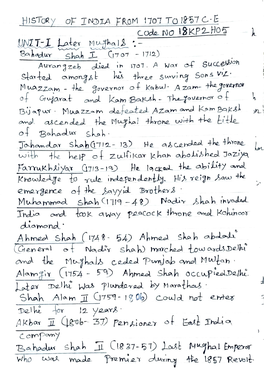 HISTORY OF INDIA FROM 1707 TO 1857 C.E
Code No 18KP2H05
UNIT-I Later Mughals :-
Bahadur Shah I (1707 - 1712)
Aurangzeb died in 1707. A war of Succession
Started amongst his three surviving Sons viz.
Muazzam - the governor of Kabul. Azam - the governor
of Gujarat and Kam Baksh - The governor of
Bijapur. Muazzam defeated Azam and Kam Baksh
and ascended the Mughal throne with the title
of Bahadur Shah.
Jahandar Shah (1712-13) He ascended the throne
with the help of Zulfikar Khan abolished Jaziya
Farrukhsiyar (1713-19) He lacked the ability and
knowledge to rule independently. His reign saw the
emergence of the Sayyid Brothers.
Muhammad Shah (1719-48) Nadir shah invaded
India and took away peacock throne and Kohinoor
diamond.
Ahmed Shah (1748-54) Ahmed Shah abdali
(General of Nadir Shah) marched towards Delhi
and the Mughals ceded Punjab and Multan.
Alamgir (1754-59) Ahmed Shah occupied Delhi.
Later Delhi was Plundered by Marathas.
Shah Alam II (1759-1806) Could not enter
Delhi for 12 years.
Akbar II (1806-37) Pensioner of East India
Company
Bahadur Shah II (1837-57) Last Mughal Emperor
who was made Premier during the 1857 Revolt